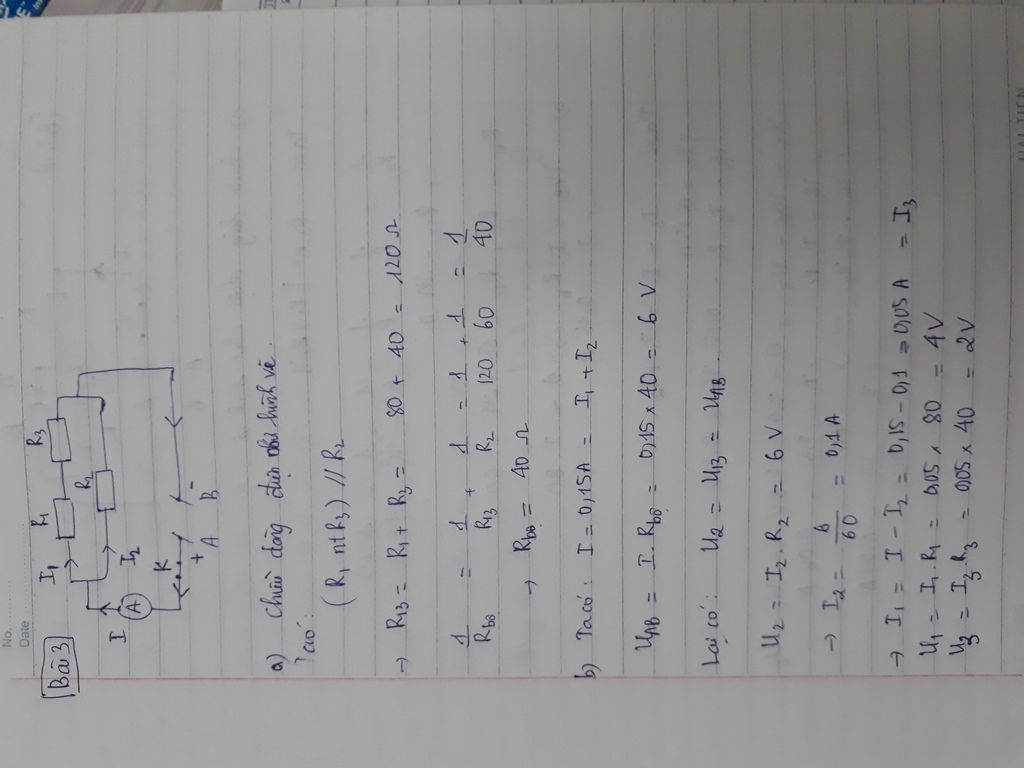 No.
Date
Bài 3
I₁ R₁ R₃
I I₂ R₂
A
K
+ -
A B
a) Chiều dòng điện như hình vẽ.
Ta có:
(R₁ nt R₃) // R₂
→ R₁₃ = R₁ + R₃ = 80 + 40 = 120 Ω
1/Rbộ = 1/R₁₃ + 1/R₂ = 1/120 + 1/60 = 1/40
→ Rbộ = 40 Ω
b) Ta có: I = 0,15A = I₁ + I₂
UAB = I. Rbộ = 0,15 x 40 = 6 V
Lại có: U₂ = U₁₃ = UAB.
U₂ = I₂. R₂ = 6 V
→ I₂ = 6/60 = 0,1 A
→ I₁ = I - I₂ = 0,15 - 0,1 = 0,05 A = I₃
U₁ = I₁. R₁ = 0,05 x 80 = 4V
U₃ = I₃. R₃ = 0,05 x 40 = 2V